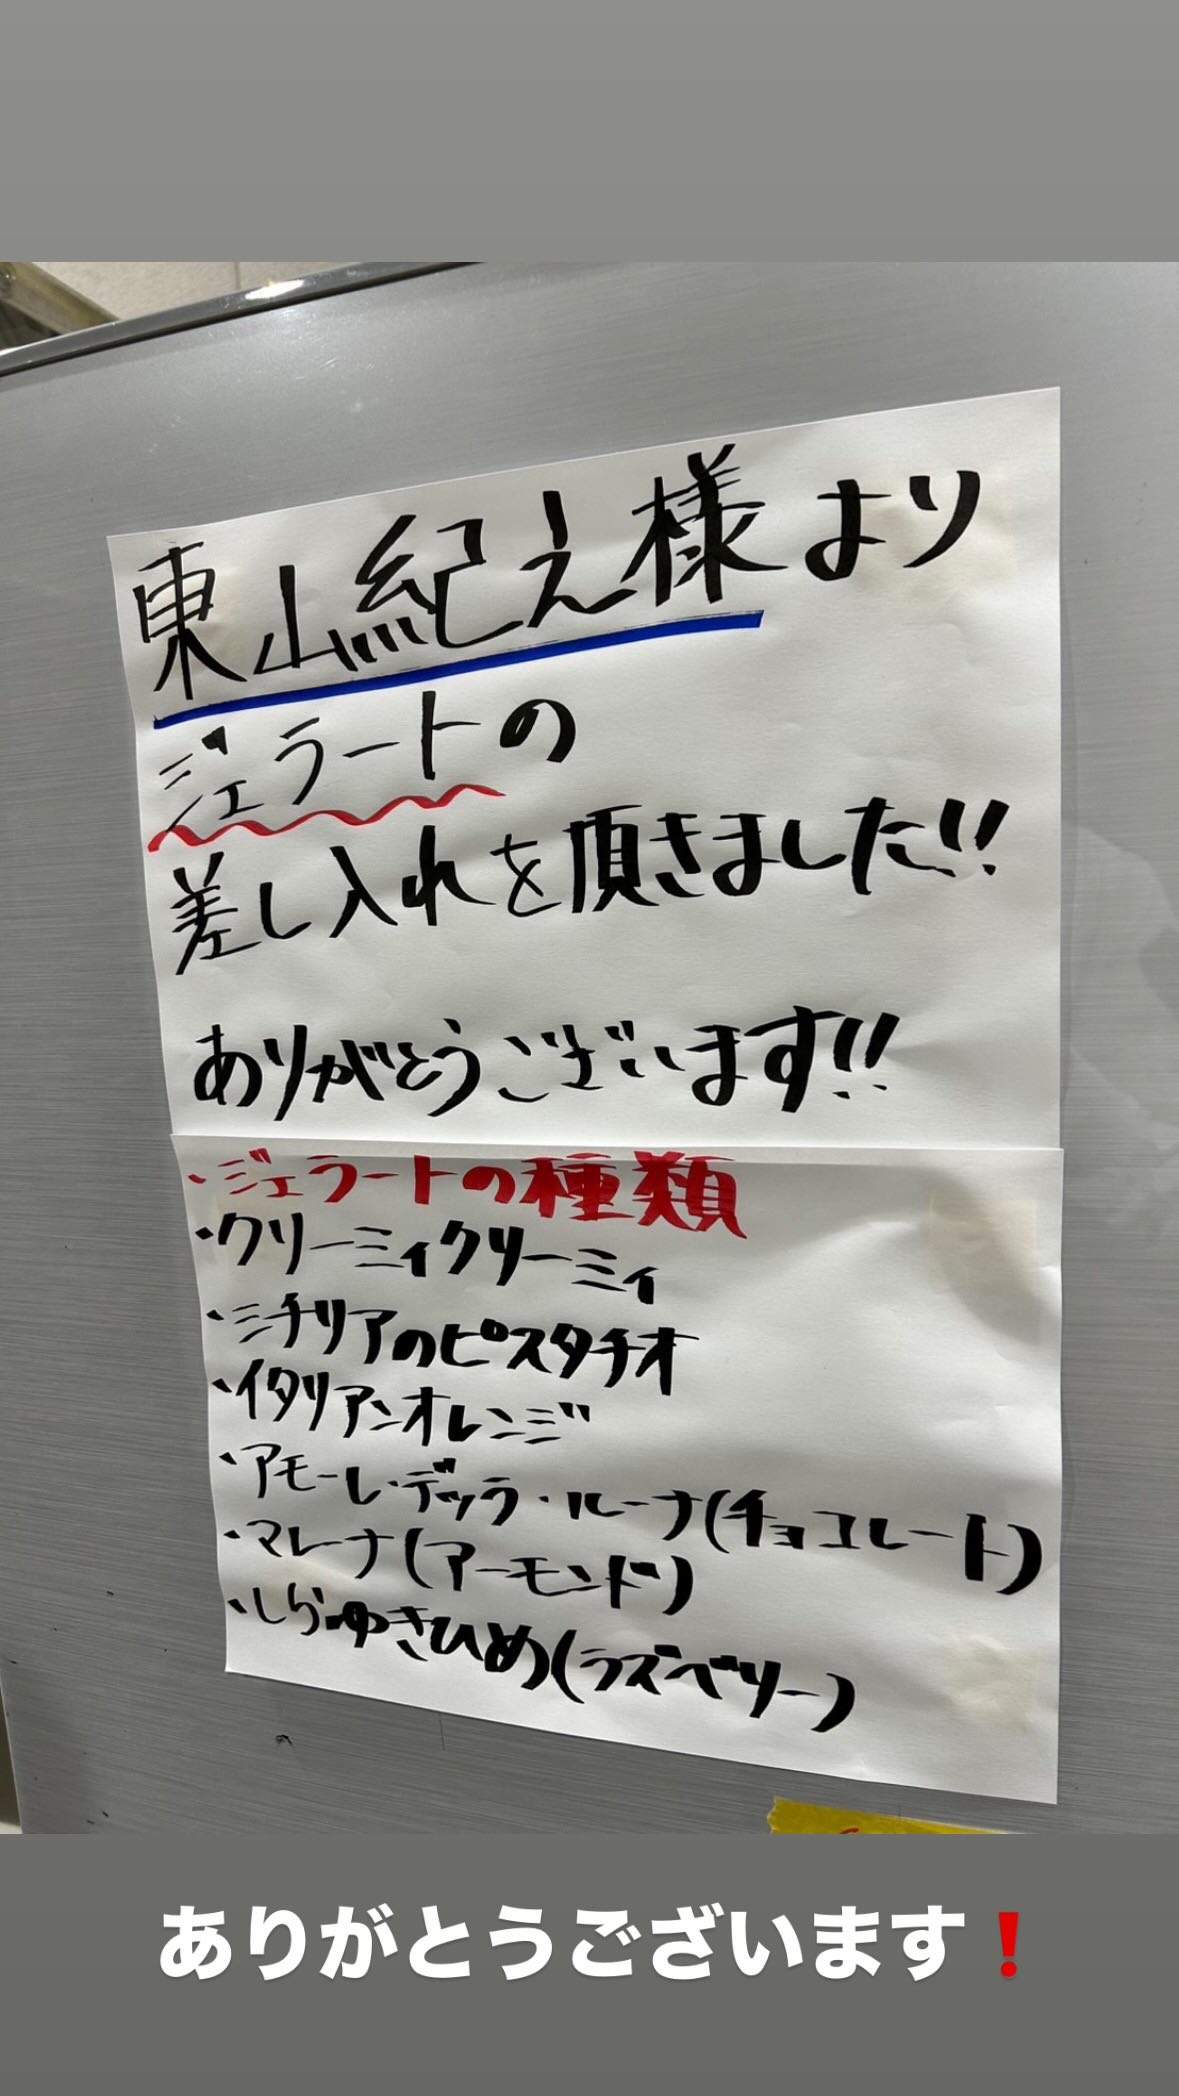 東山紀之様より
ジェラートの
差し入れを頂きました!!
ありがとうございます!!
・ジェラートの種類
・クリーミィクリーミィ
・ミチリアのピスタチオ
・イタリアンオレンジ
・アモーレ・デッラ・ルーナ(チョコレート)
・マレーナ(アーモンド)
・しらゆきひめ(ラズベリー)
ありがとうございます❗